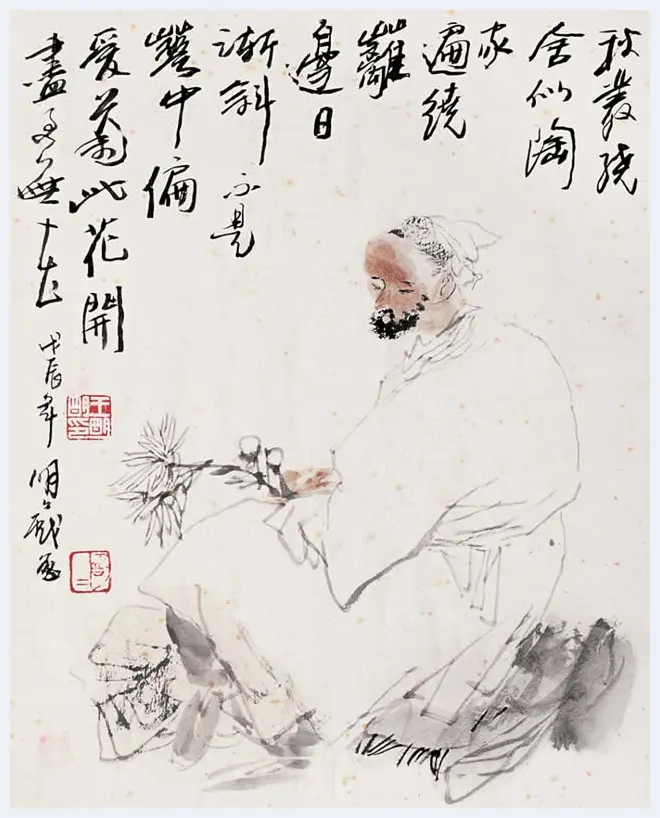 秋叢繞
舍似陶
家
遍繞
籬
邊日
漸斜不是
中偏
愛菊此花開
盡更無花
戊辰年
明明戲
王明明印